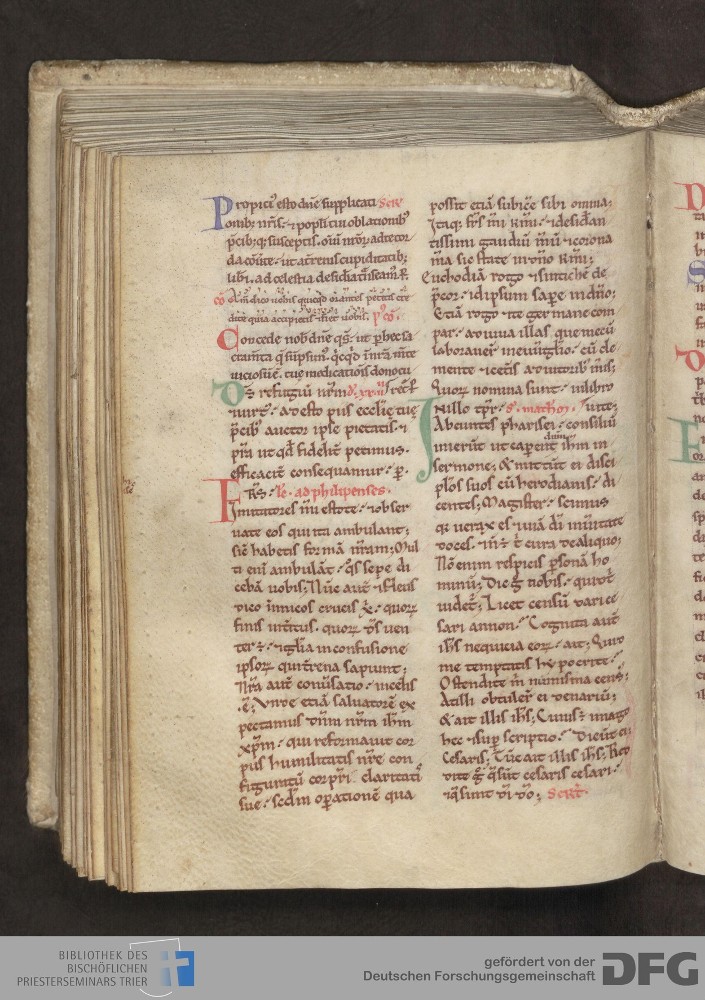 Propiciꝰ esto dn̄e supplicati Scr̄
onib; nr̄is. ⁊ popl̄i tui oblationib;
p̄cib;q; susceptis. oīu n̄rōꝝ ad te cor
da cōu̾te. ut at̾renis cupiditatib;
lib̾i. ad celestia desid̾ia
cō Am̄ dico uobis quicq̄d orantes petitis cre
dite quia accipietis ⁊ fiet uobis. pꝰ cō.
Concede nob̄ dn̄e q̄s. ut p̾ hec sa
cram̄ta q̄ sūpsimꝰ. q̄cq̄d in nr̄a m̄te
uiciosū ē. tue medicatiōis dono cu
Ds̄ refugiū nr̄m d. xx
uirtꝰ. adesto piis ecclīe tue
p̄cibꝰ auctor ipse pietatis. ⁊
pr̄a ut qd̄ fidelit̾ petimus.
efficacit̾ consequamur. p̾.
Fr̄s. le. ad philipenses.
Imitatores mī estote. ⁊ obser
uate eos qui ita ambulant;
sic̄ habetis formā nr̄am; Mul
ti eni ambulāt. q̄s sepe di
cebā uobis; Nūc aut̄ ⁊ flens
dico inimicos crucis x̄. quoꝝ
finis int̾itus. quoꝝ ds̄ uen
ter ē. ⁊ gl̄ia in confusione
ipsoꝝ qui t̾rena sapiunt;
Nr̄a aut̄ conu̾satio. in celis
.ē; Vnde etiā saluatorē ex
pectamus dn̄m nr̄m ih̄m
xp̄m. qui reformauit cor
pus humilitatis nr̄e con
figuratū corp̾ri claritati
sue. scd̄m op̾ationē qua
possit etiā subic̾e sibi omnia;
Itaq; fr̄s mī kmī. ⁊ desid̾an
tissimi gaudiū mm̄ ⁊ corona
m̄a sic state in dn̄o kmī;
Euchodiā rogo ⁊ sintichē de
p̄cor. id ipsum sap̾e in dn̄o;
Etiā rogo ⁊ te ger mane com
par. adiuua illas que mecū
laborauer̄ in eu̾ngl̄io. cū cle
mente ⁊ cet̾is adiutorib; mīs;
Quorꝝ nomina sunt. in libro
In illo tp̄r. S. matheꝝ. uite;
Abeuntes pharisei. consiliū
inierūt ut cap̾ent ih̄m in
sermone; & mittūt ei disci
pl̄os suos cū herodianis. di
centes; Magister. scimus
q̄ uerax es ⁊ uiā di in u̾itate
doces. ⁊ n̄ ē t̄ cura de aliquo;
Nō enim respicis p̾sonā ho
minū; Dic g̊ nobis. quid t̄
uidet̾; Licet censū dari ce
sari an non. Cognita aut̄
ih̄s nequicia eoꝝ. ait; Quid
me temptatis hypocrite.
Ostendite m̄ numisma cens;
At illi obtuler̄ ei denariū;
& ait illis ih̄s; Cuius ē imago
hec ⁊ sup̾scriptio. Dicūt ei;
Cesaris; Tūc ait illis ih̄s; Red
dite g̊ q̄ sūt cesaris cesari.
⁊ q̄ sunt di dō; Secret̾.
BIBLIOTHEK DES
BISCHÖFLICHEN
PRIESTERSEMINARS TRIER
gefördert von der
Deutschen Forschungsgemeinschaft DFG